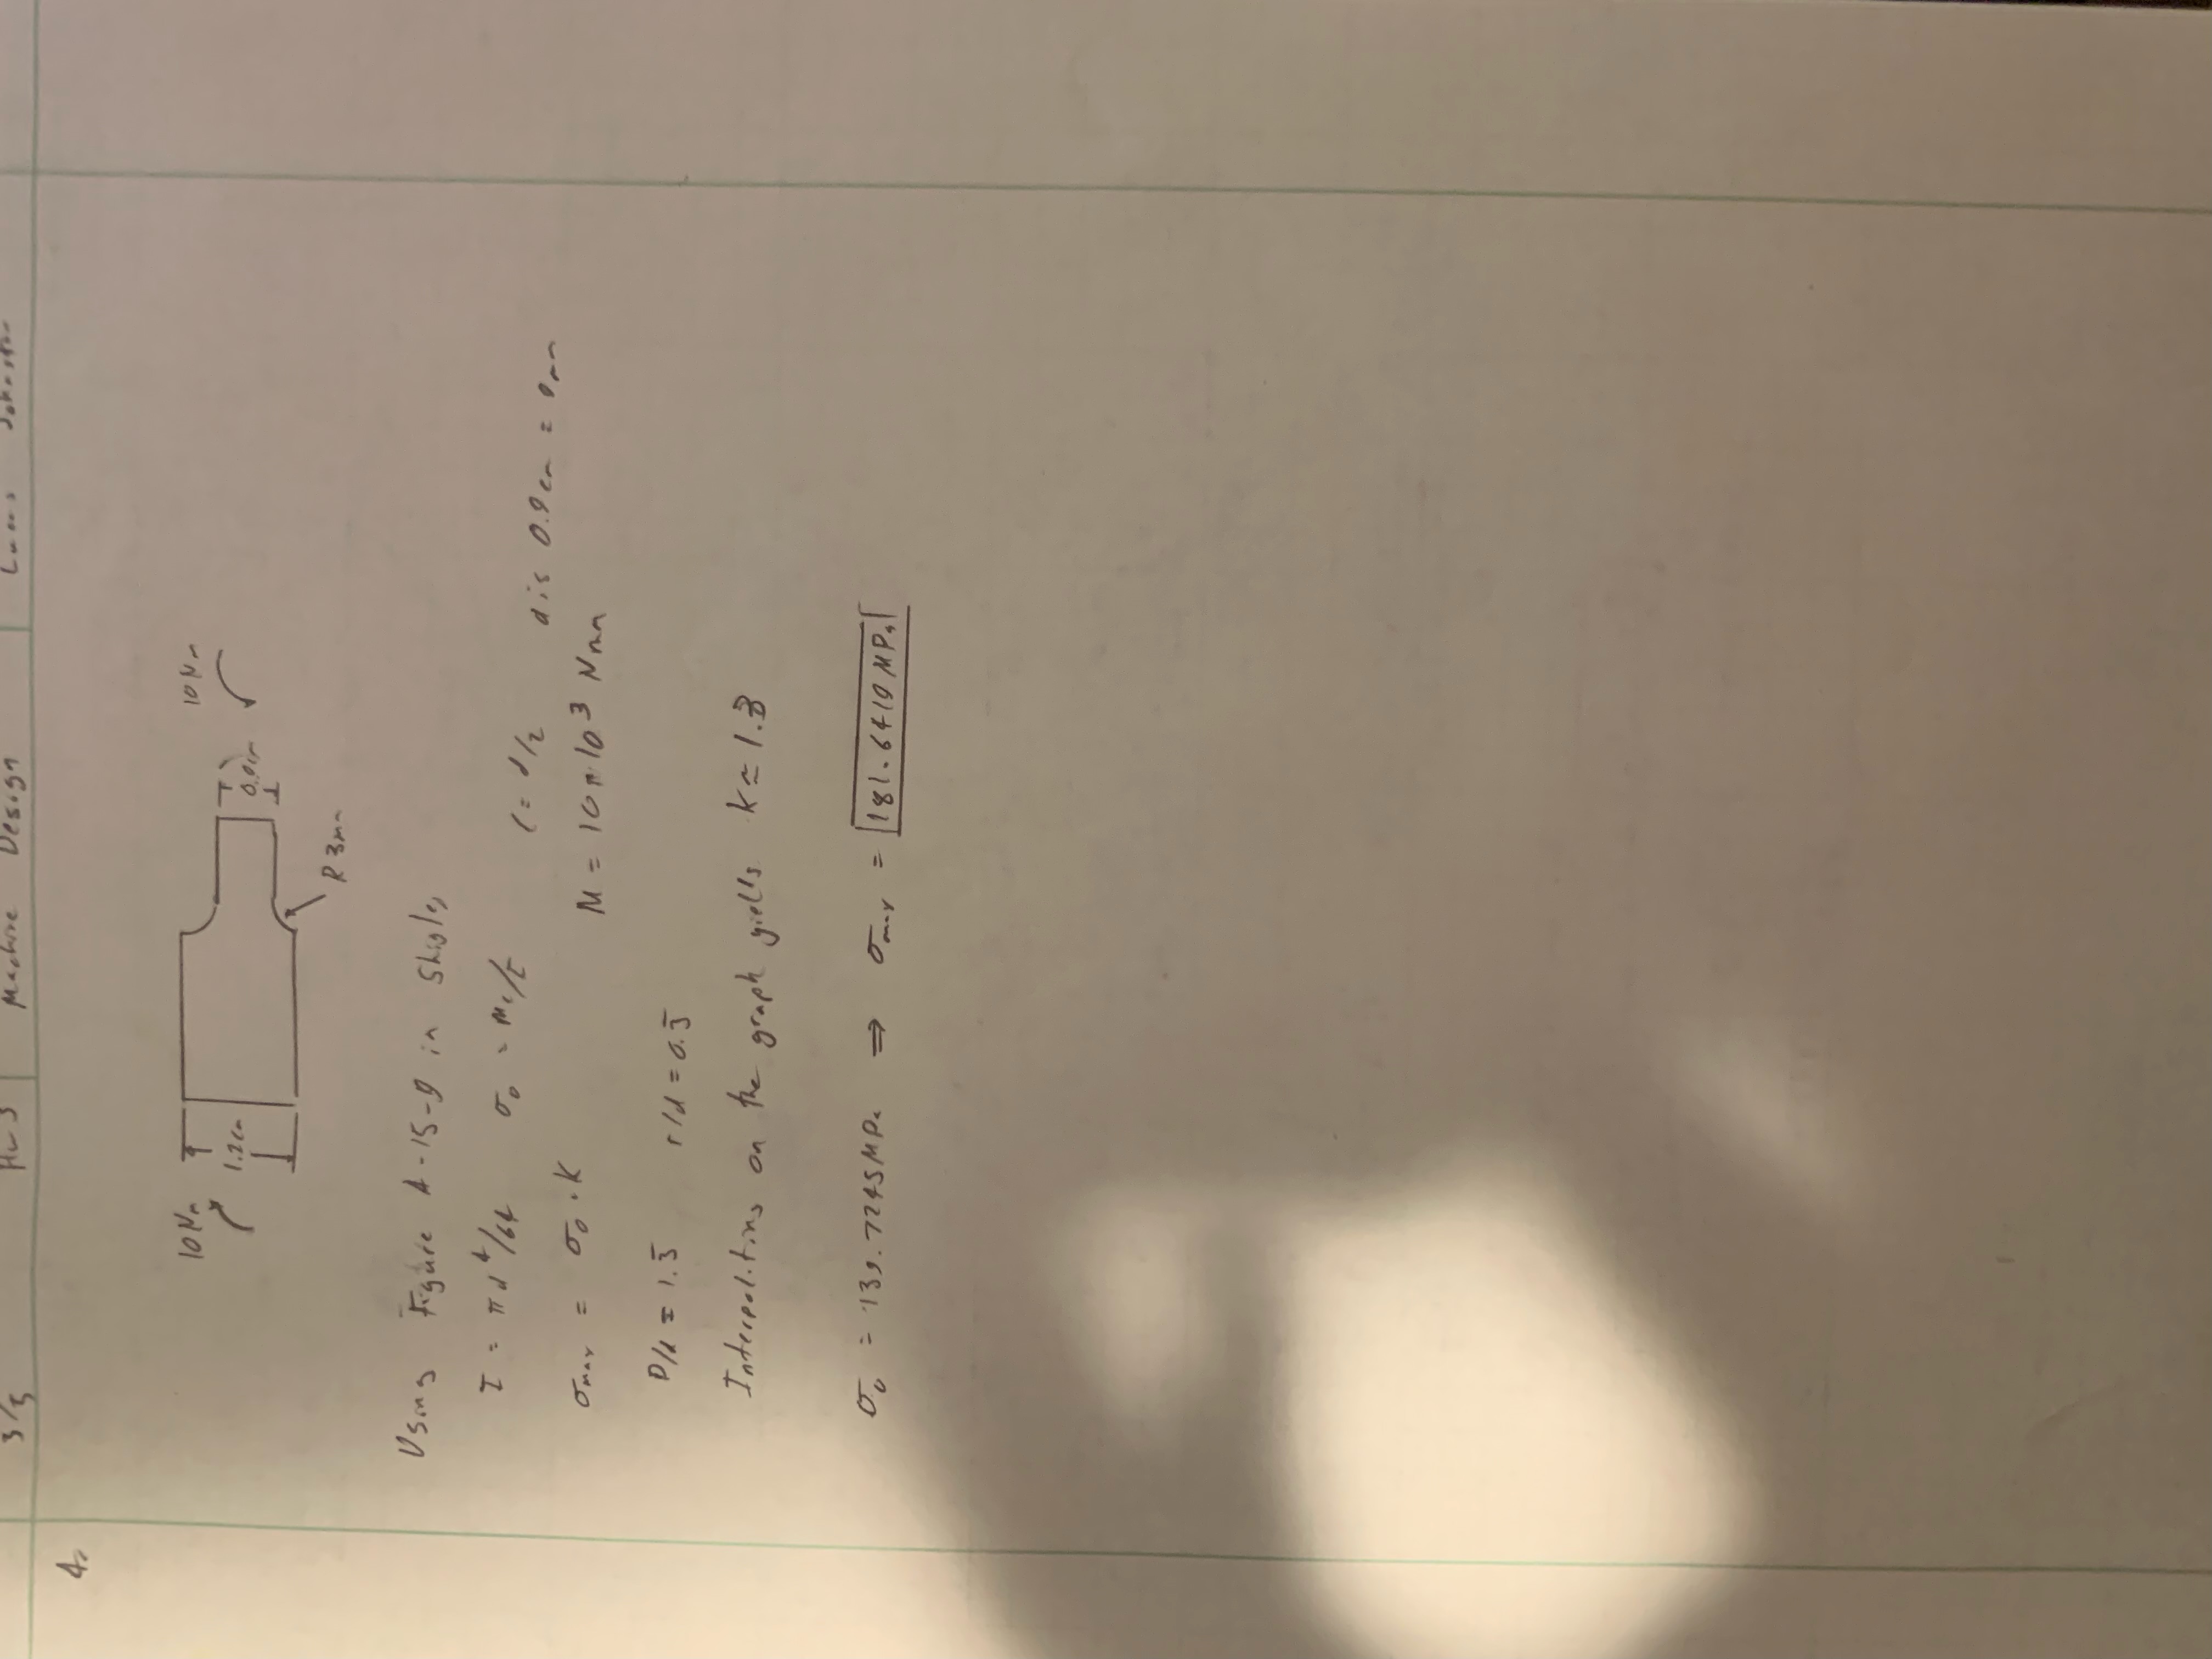 3/5 HW 3 Machine Design Lucas Johnston
4.
10 Nm 10 Nm
1.2cm 0.9cm
R 3mm
Using Figure A-15-9 in Shigley
I = πd⁴/64 σ₀ = Mc/I c = d/2 d is 0.9cm = 9mm
σmax = σ₀ · K M = 10*10³ Nmm
D/d = 1.3̅ r/d = 0.3̅
Interpolating on the graph yields K ≈ 1.3
σ₀ = 139.7245 MPa ⇒ σmax = 181.6419 MPa